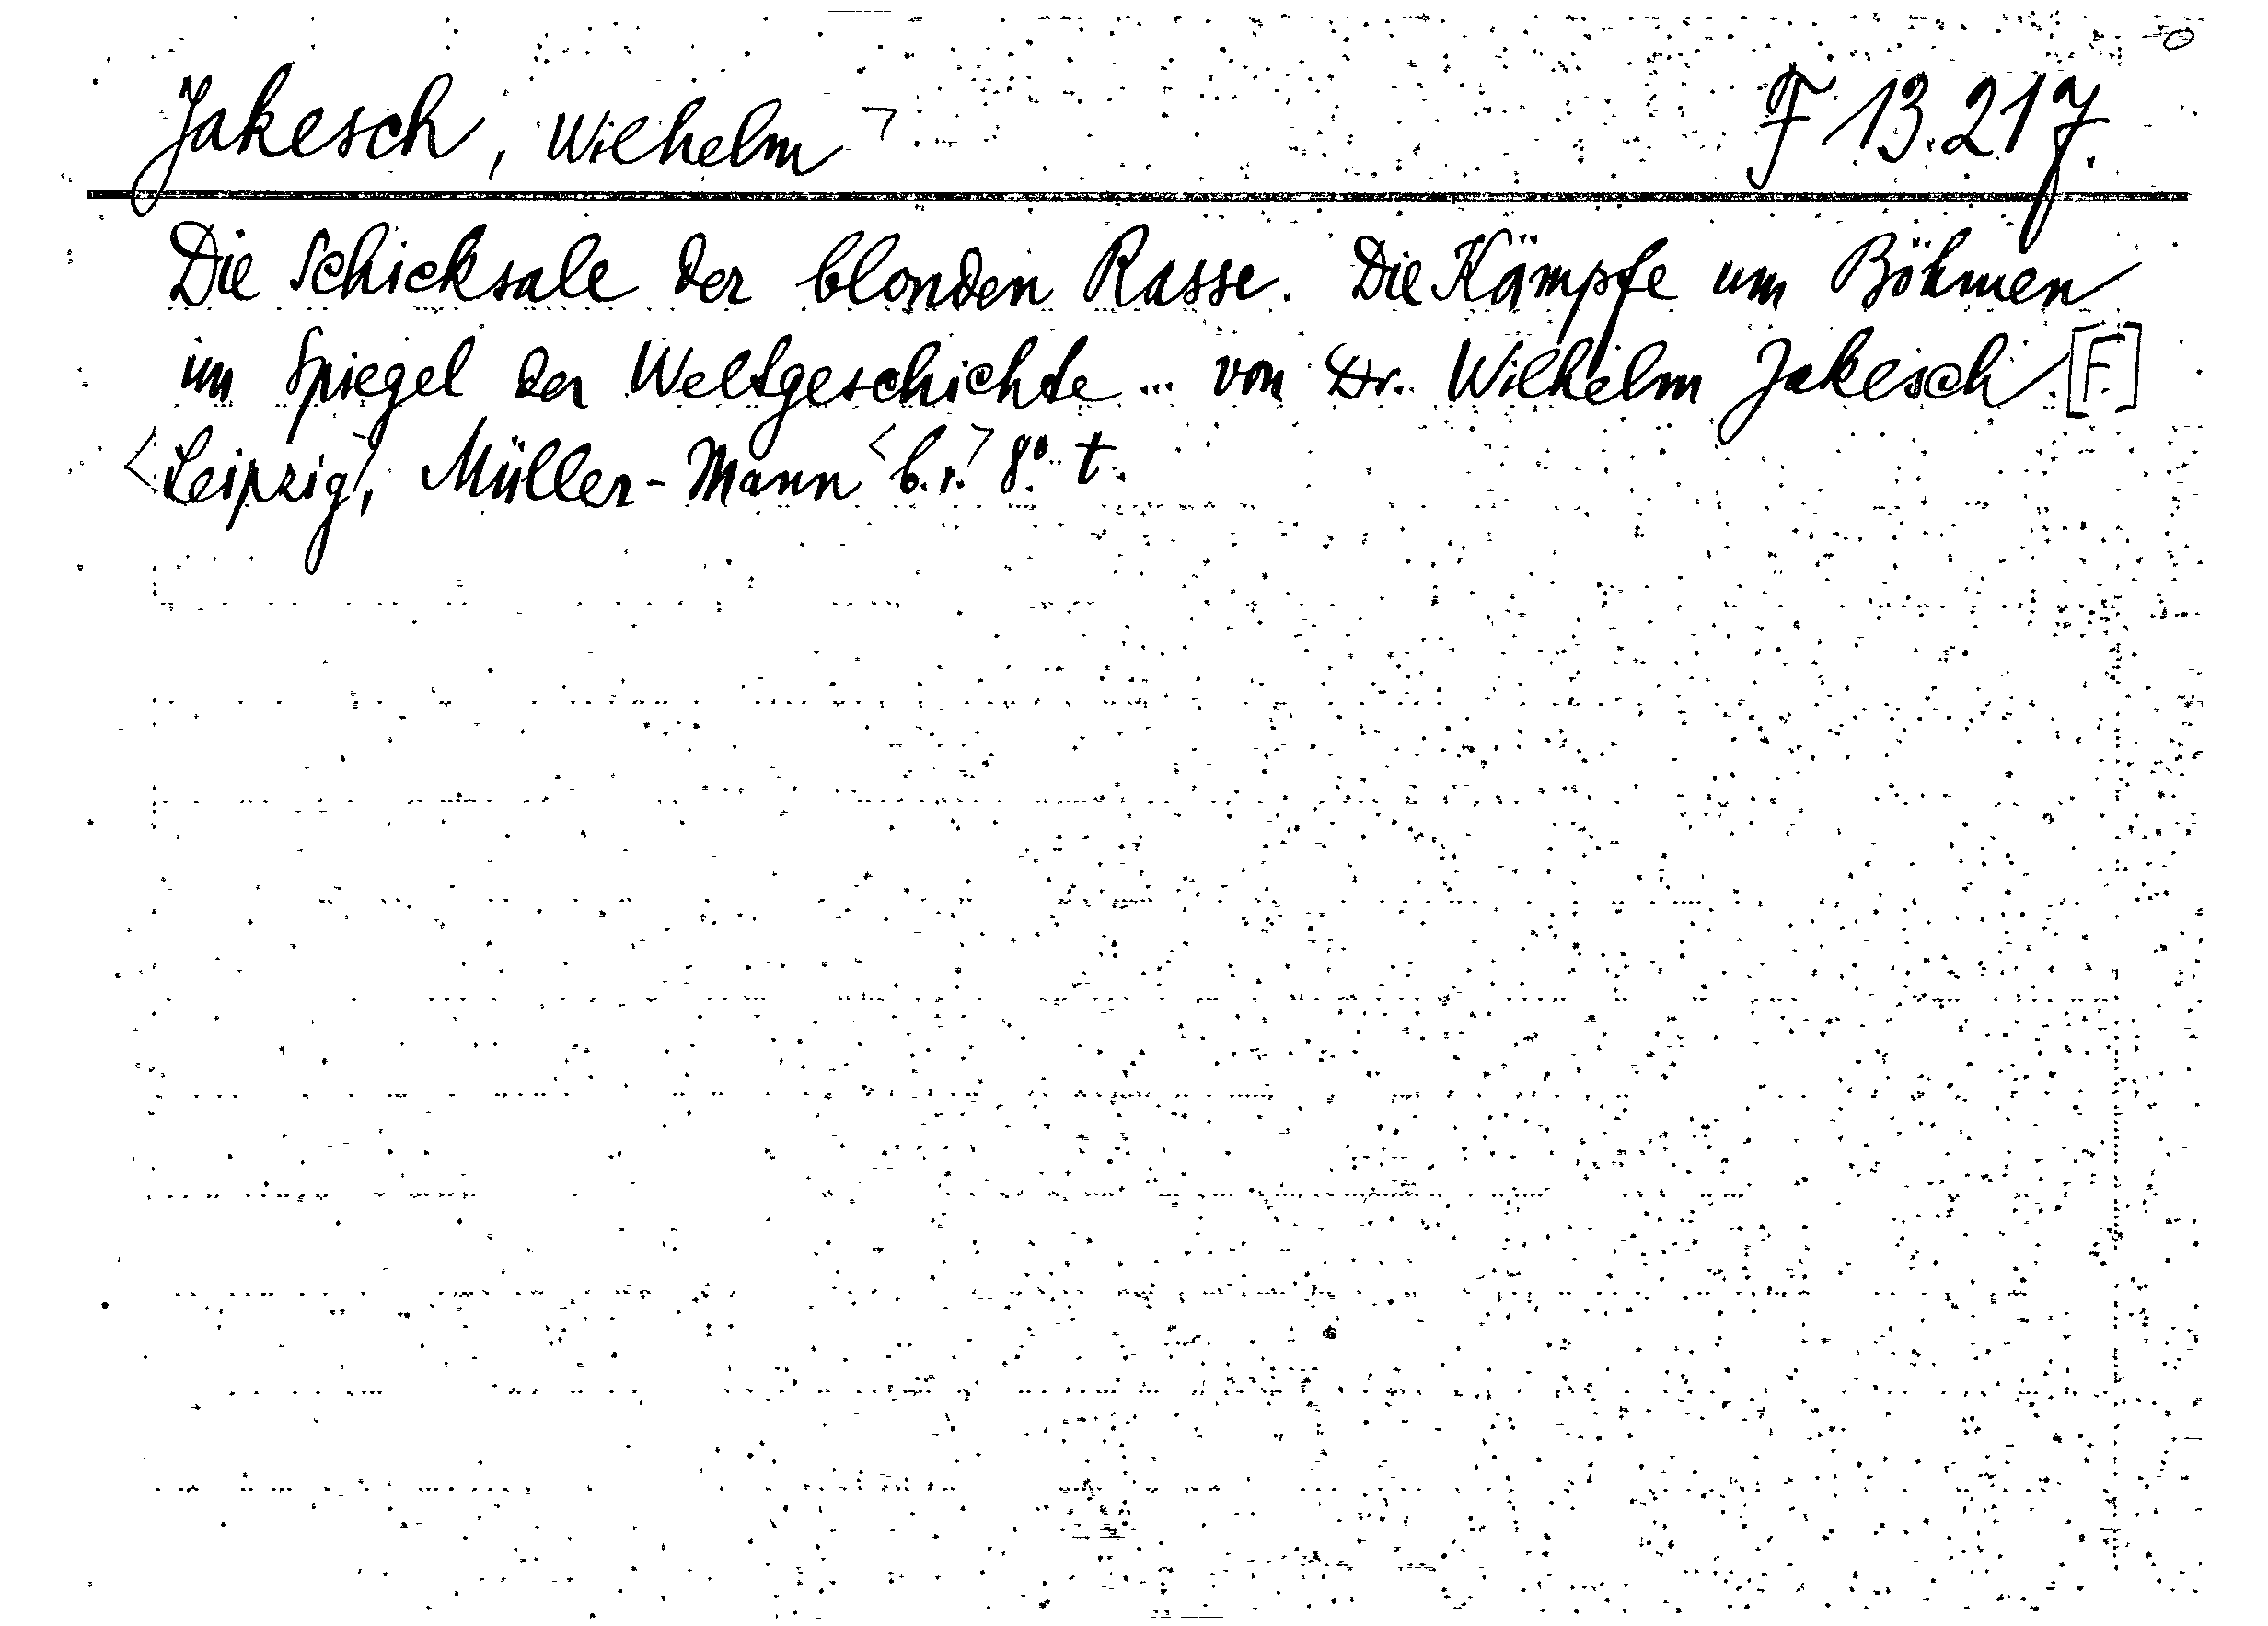 Jakesch, Wilhelm F 13.217.
Die Schicksale der blonden Rasse. Die Kämpfe um Böhmen
im Spiegel der Weltgeschichte ... von Dr. Wilhelm Jakesch. [F.]
<Leipzig>, Müller-Mann <b.r.> 8°. t.